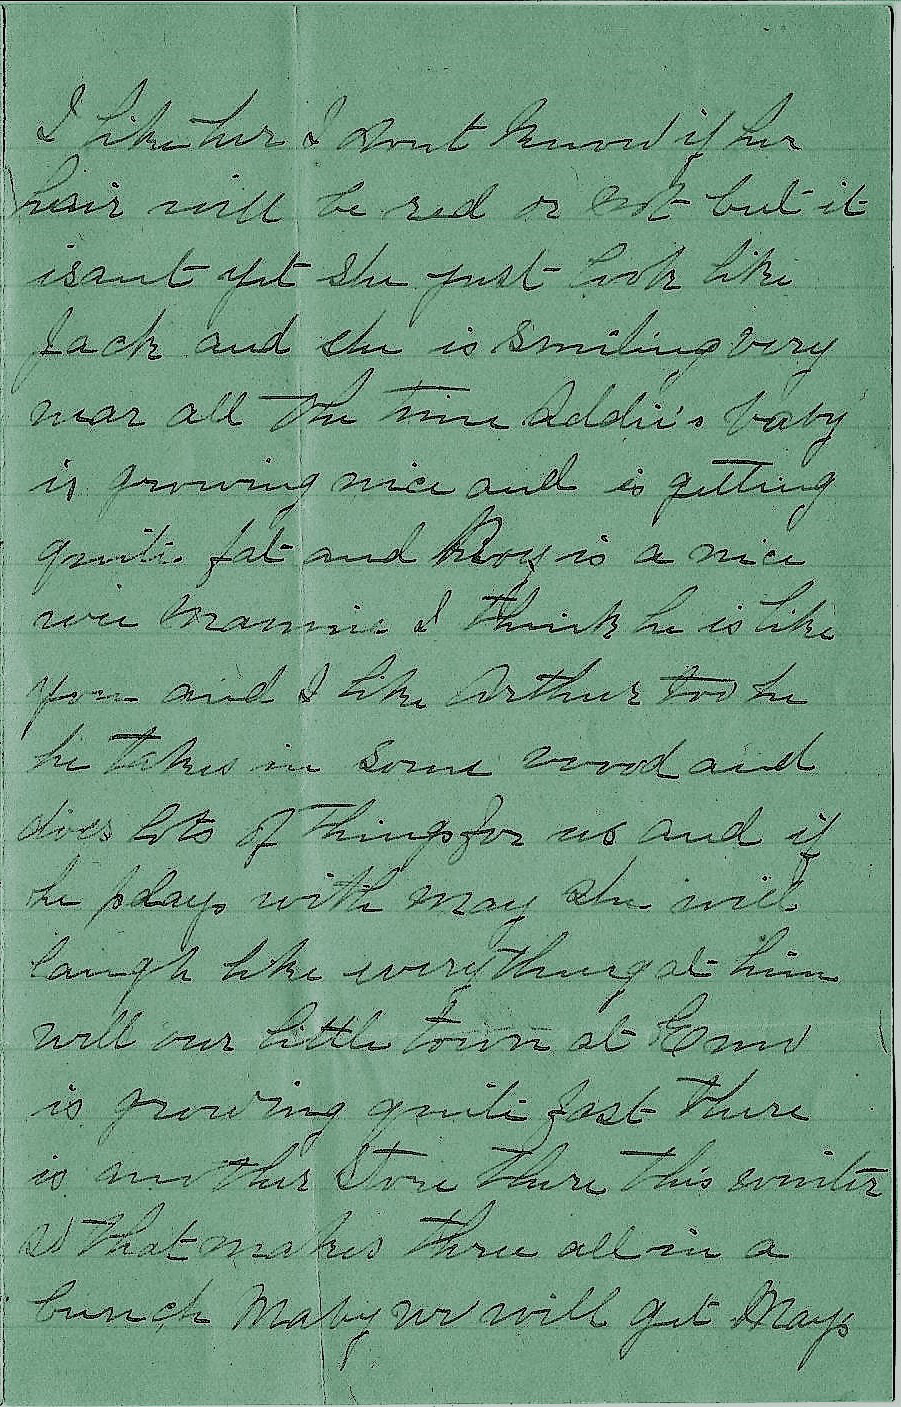 I like her I dont know if her
hair will be red or not but it
isant yet she just look like
Jack and she is smiling very
near all the time Addie's baby
is growing nice and is getting
quite fat and Roy is a nice
wee mannie I think he is like
you and I like Arthur too he
he takes in some wood and
does lots of things for us and if
he plays with May she will
laugh like everything at him
well our little town at Emo
is growing quite fast there
is another Store there this winter
so that makes three all in a
bunch Maby we will get Mays